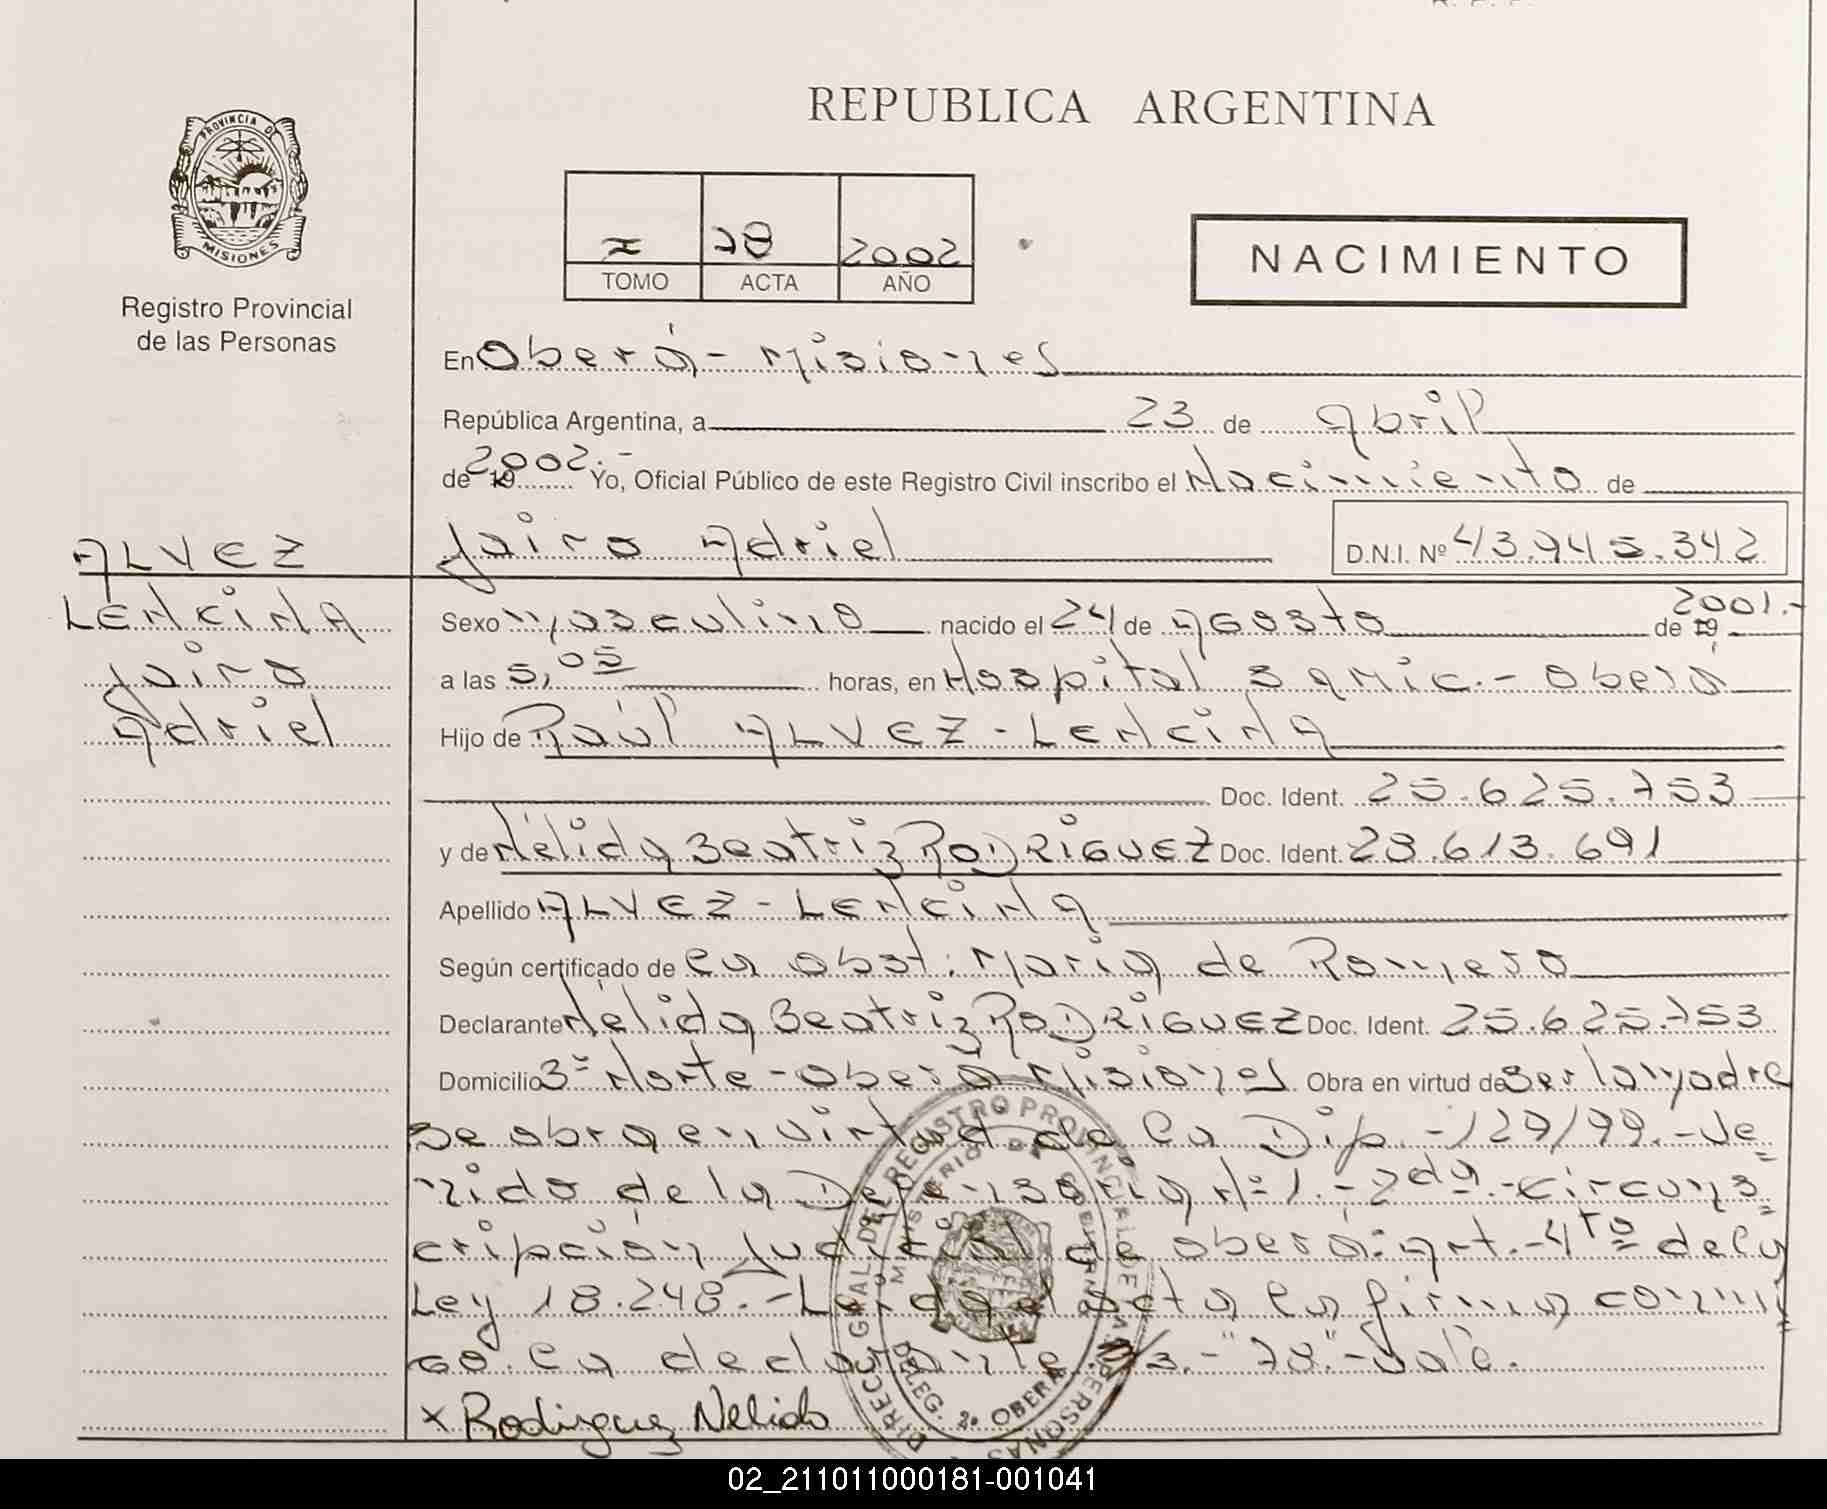 REPUBLICA ARGENTINA
PROVINCIA DE
MISIONES
Registro Provincial
de las Personas
78 2002
TOMO ACTA AÑO
NACIMIENTO
En Oberá - Misiones
República Argentina, a 23 de Abril
de 19 2002.- Yo, Oficial Público de este Registro Civil inscribo el Nacimiento de
Jairo Adriel D.N.I. Nº 43.945.342
ALVEZ
LENCINA
Jairo
Adriel
Sexo Masculino nacido el 24 de Agosto de 19 2001.-
a las 5,05 horas, en Hospital Samic.- Oberá
Hijo de Raúl ALVEZ - LENCINA
Doc. Ident. 25.625.753
y de Nélida Beatriz RODRIGUEZ Doc. Ident. 28.613.691
Apellido ALVEZ - LENCINA
Según certificado de la obst. María de Romero
Declarante Nélida Beatriz RODRIGUEZ Doc. Ident. 25.625.753
Domicilio Norte - Oberá Misiones Obra en virtud de Ser la madre
Se obra en virtud de la Dip. - 129/99.- Ve=
nido de la N=1.- 2da.- Circuns=
cripción Judicial de Oberá: Art.- 4to de la
Ley 18.248.- Leída el acta la firma conmi
go la declarante "78".- Vale.
x Rodriguez Nelida
DIRECC. GRAL. DEL REGISTRO PROVINCIAL DE LAS PERSONAS
MINISTERIO DE GOBIERNO
DELEG. 2ª OBERA
02_211011000181-001041